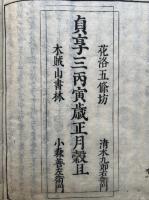 花洛五條坊
清水九郎右衛門
貞享三丙寅歳正月穀旦
木賊山書林
小森善左衛門